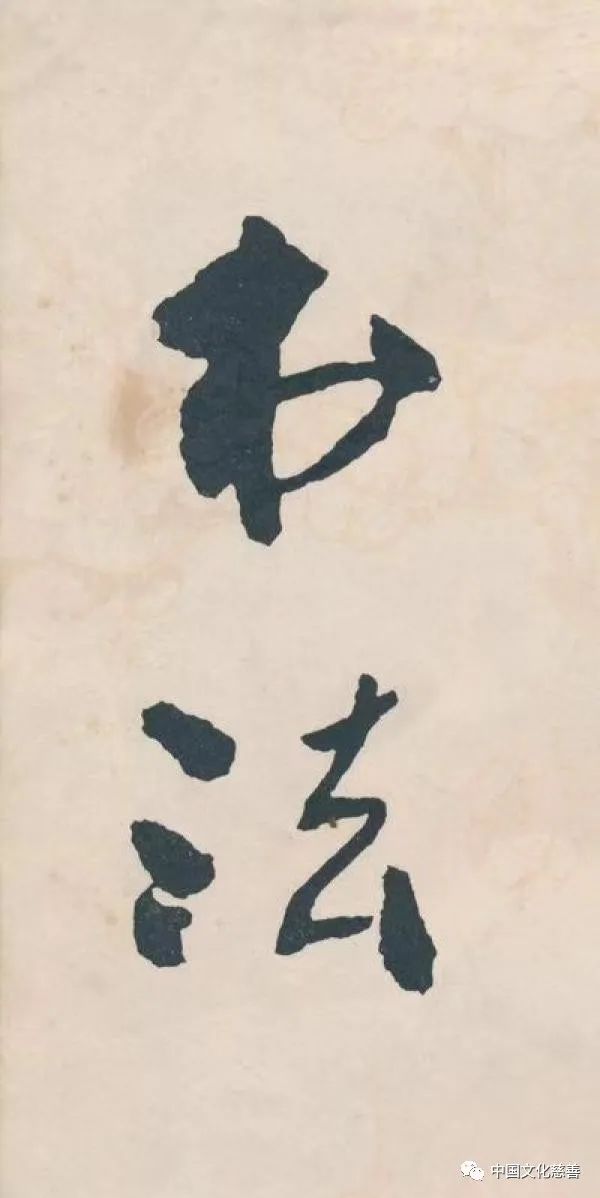 法
中国文化慈善